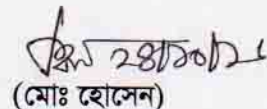 ২৪/১০/২১
(মোঃ হোসেন)